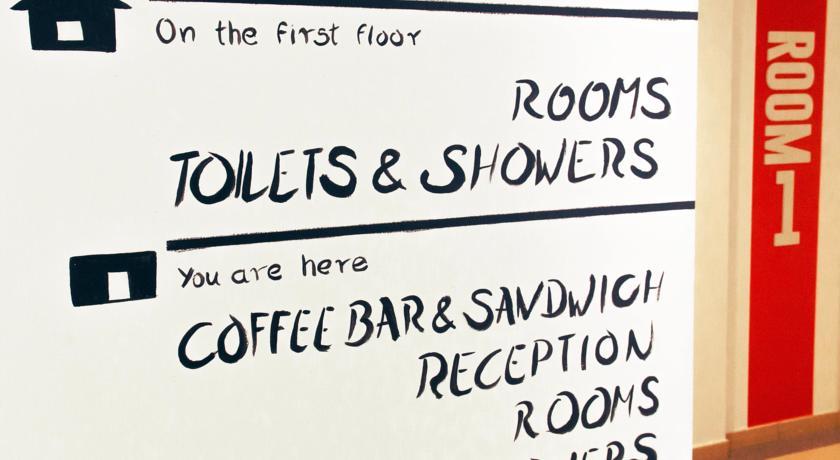 On the first floor
ROOMS
TOILETS & SHOWERS
You are here
COFFEE BAR & SANDWICH
RECEPTION
ROOMS
ROOM 1